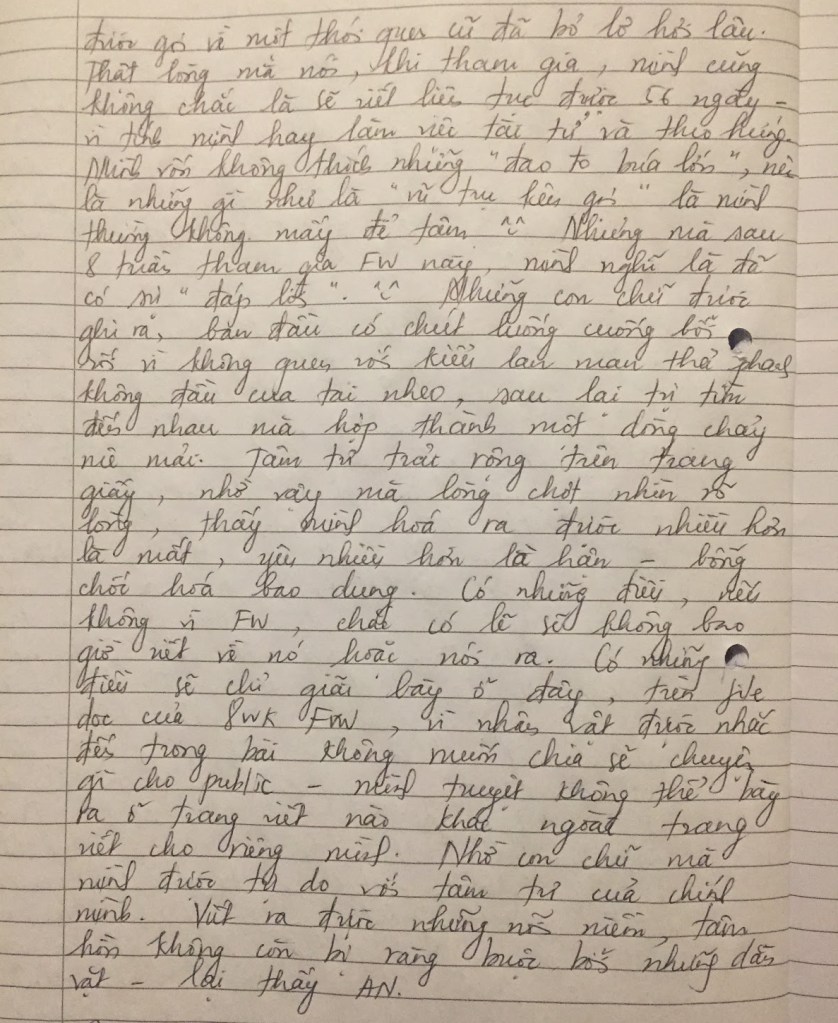 được gọi về một thói quen cũ đã bỏ lỡ hơi lâu.
Thật lòng mà nói, khi tham gia, mình cũng
không chắc là sẽ viết liên tục được 56 ngày -
vì tính mình hay làm việc tài tử và theo hứng.
Mình vốn không thích những "đao to búa lớn", nên
là những gì như là "vũ trụ kêu gọi" là mình
thường không mấy để tâm ^^ Nhưng mà sau
8 tuần tham gia FW này, mình nghĩ là đã
có sự "đáp lời". ^^ Những con chữ được
ghi ra, ban đầu có chút luống cuống bối
rối vì không quen với kiểu lan man thả phanh
không đầu cua tai nheo, sau lại tự tìm
đến nhau mà hợp thành một dòng chảy
miê mải. Tâm tư trải rộng trên trang
giấy, nhờ vậy mà lòng chợt nhìn rõ
lòng, thấy mình hoá ra được nhiều hơn
là mất, yêu nhiều hơn là hận - bỗng
chốc hoá bao dung. Có những điều, nếu
không vì FW, chắc có lẽ sẽ không bao
giờ viết về nó hoặc nói ra. Có những
điều sẽ chỉ giãi bày ở đây, trên file
doc của 8WK FW, vì nhân vật được nhắc
đến trong bài không muốn chia sẻ chuyện
gì cho public - mình tuyệt không thể bày
ra ở trang viết nào khác ngoài trang
viết cho riêng mình. Nhờ con chữ mà
mình được tự do với tâm tư của chính
mình. Viết ra được những nỗi niềm, tâm
hồn không còn bị ràng buộc bởi những dằn
vặt - lại thấy AN.